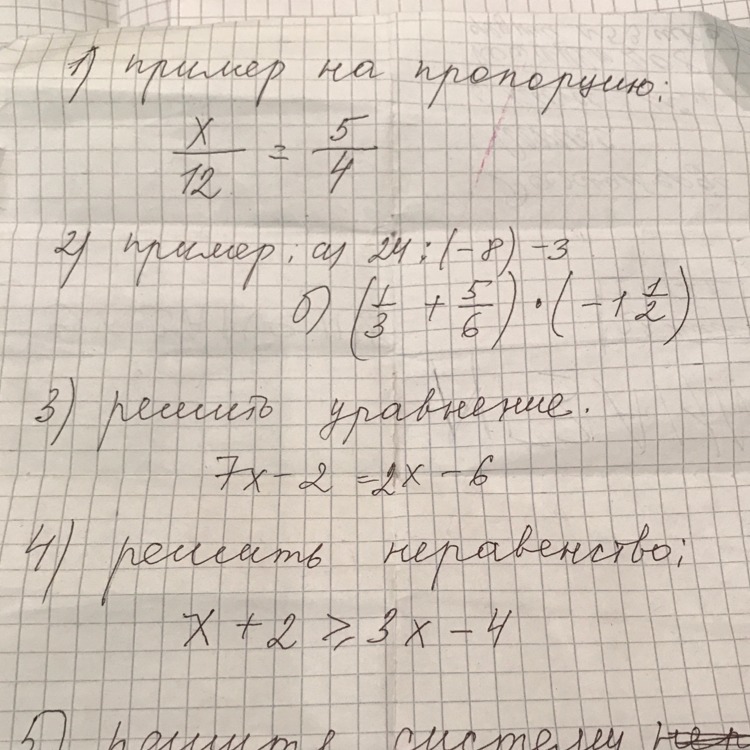 1) пример на пропорцию:
x/12 = 5/4
2) пример: а) 24 : (-8) - 3
б) (1/3 + 5/6) · (-1 1/2)
3) решить уравнение.
7x - 2 = 2x - 6
4) решить неравенство;
x + 2 ⩾ 3x - 4
5) решить систему